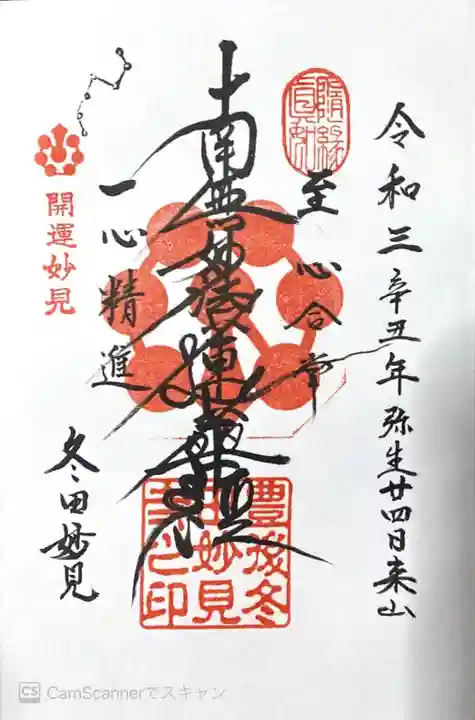 令和三辛丑年弥生廿四日来山
隨縁真如
至心合掌
南無妙法蓮華経
一心精進
開運妙見
冬田妙見
豊後冬
田妙見
之印
CS CamScannerでスキャン